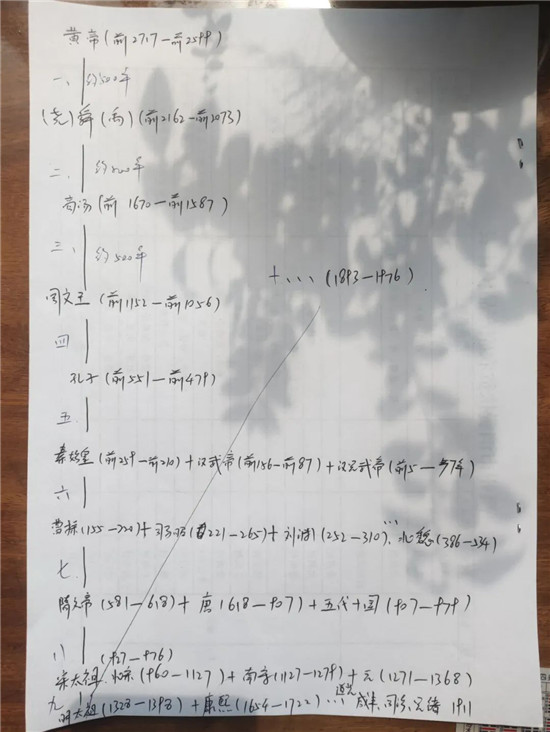 黄帝(前2717—前2599)
一、约500年
(尧)舜(禹)(前2162—前2073)
二、约500年
商汤(前1670—前1587)
三、约500年
十、、、(1893—1976)
周文王(前1152—前1056)
四
孔子(前551—前479)
五、
秦始皇(前259—前210)+汉武帝(前156—前87)+汉光武帝(前5—57年)
六
曹操(155—220)+司马昭(221—265)+刘渊(252—310)…北魏(386—534)
七、
隋文帝(581—618)+唐(618—907)+五代十国(907—979)
八 (927—976)
宋太祖.北宋(960—1127)+南宋(1127—1279)+元(1271—1368)
九、明太祖(1328—1398)+康熙(1654—1722)…道光 咸丰、同治、 1911